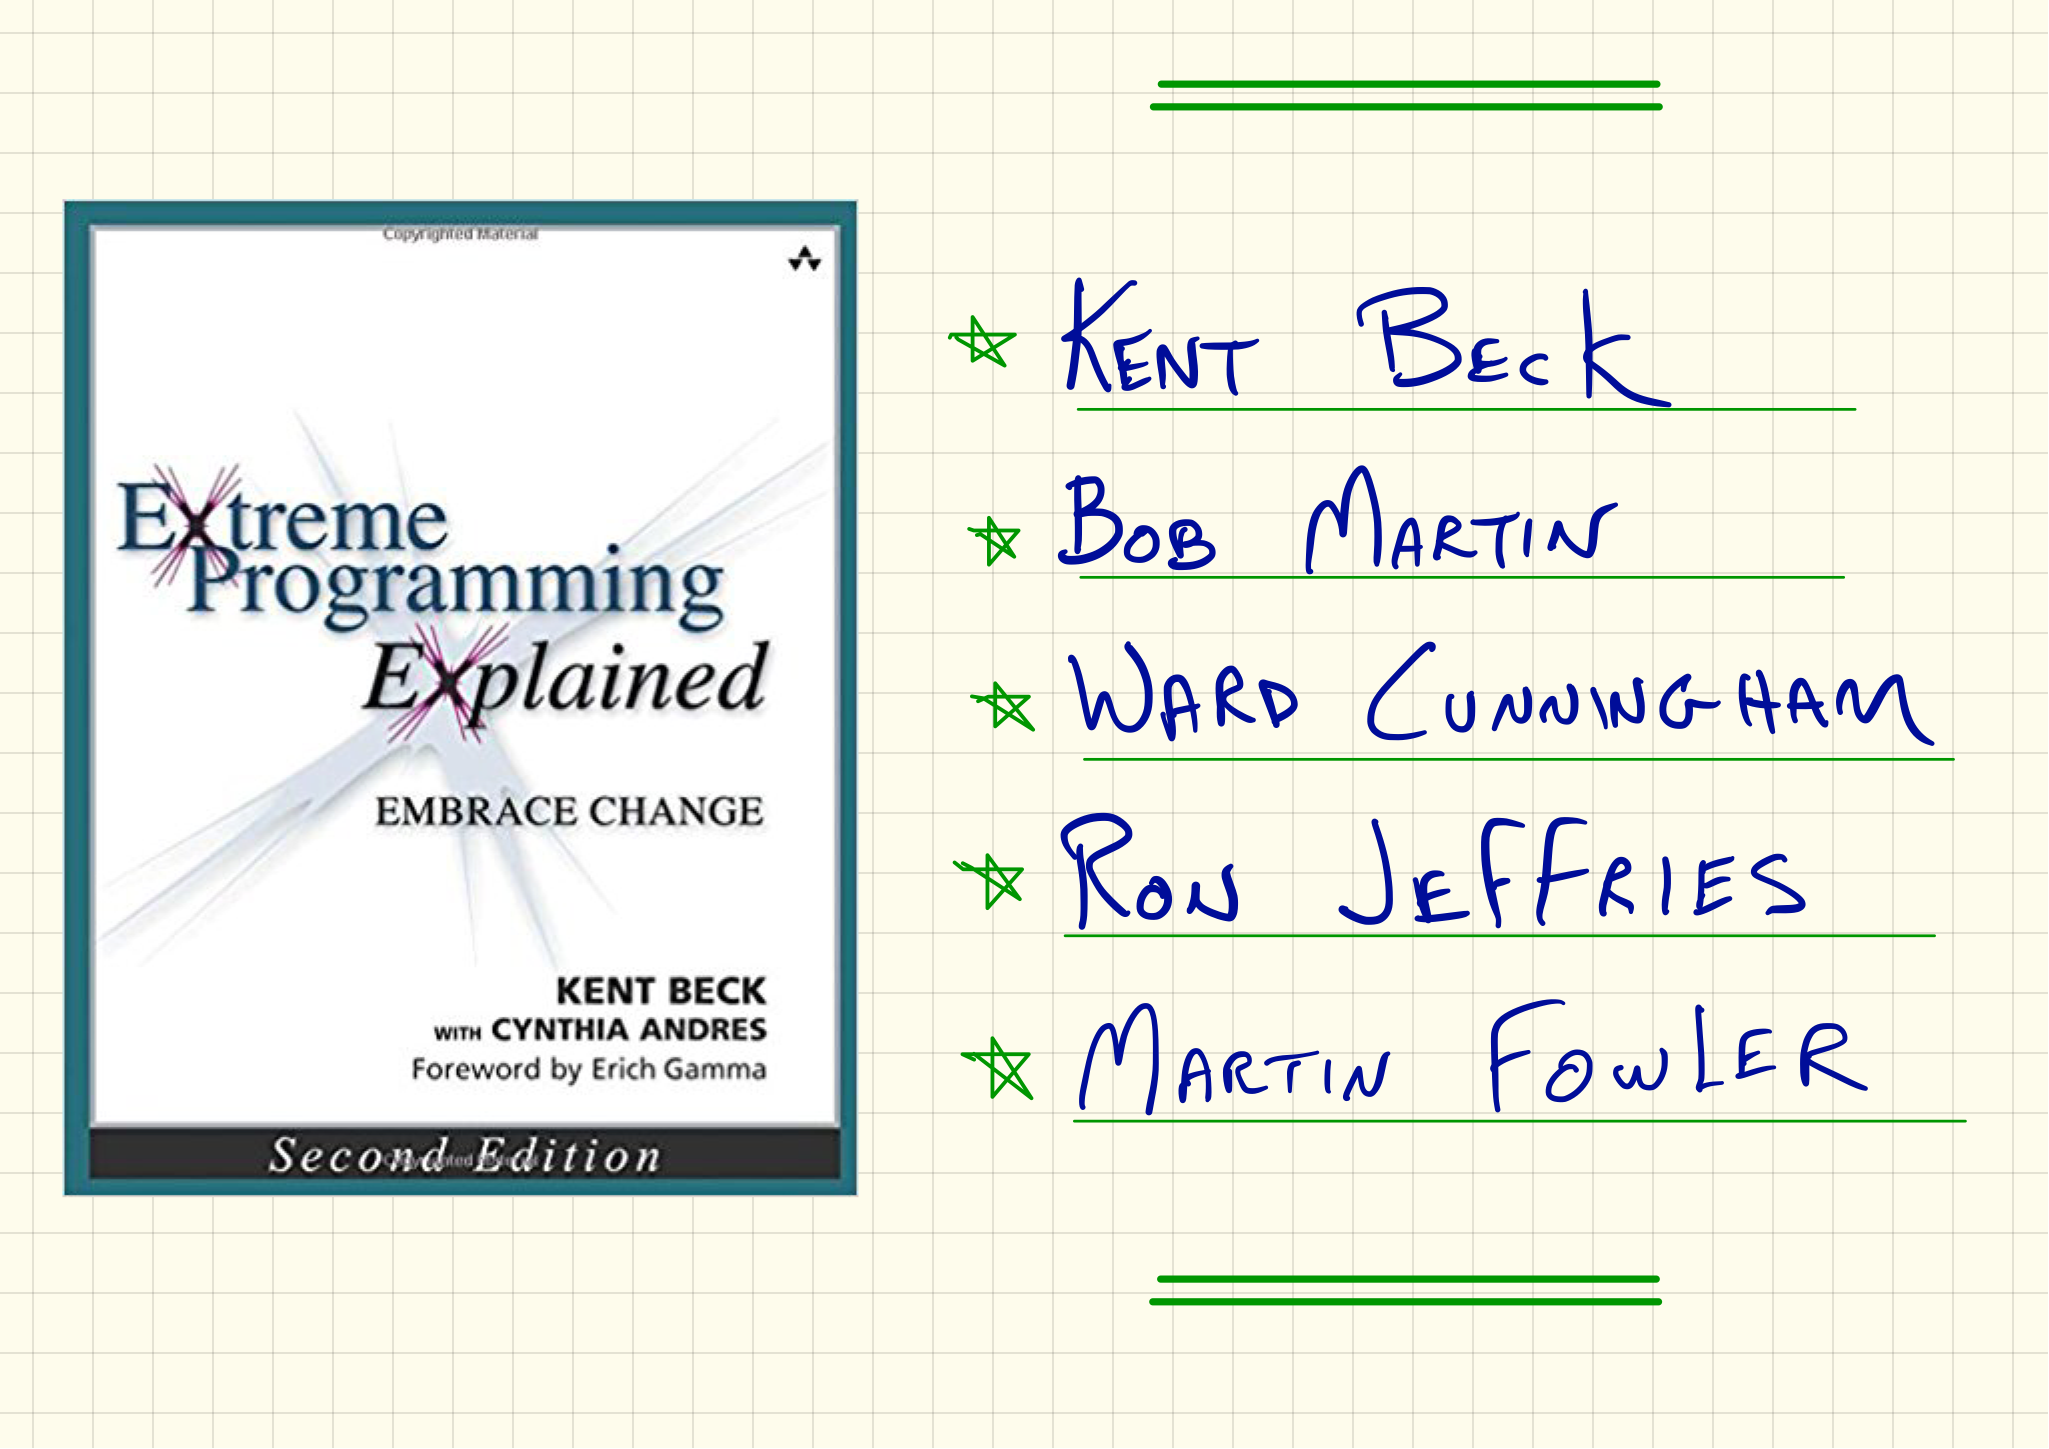 Copyrighted Material
Extreme
Programming
Explained
EMBRACE CHANGE
KENT BECK
WITH CYNTHIA ANDRES
Foreword by Erich Gamma
Second Edition
Copyrighted Material
KENT BECK
BOB MARTIN
WARD CUNNINGHAM
RON JEFFRIES
MARTIN FOWLER